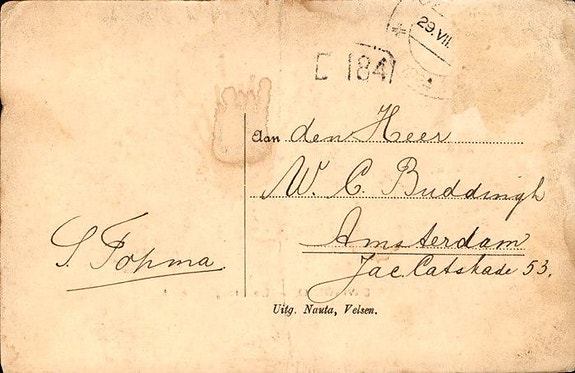 29.VII.
184
Aan den Heer
W. C. Buddingh
Amsterdam
Jac. Catskade 53.
S. Popma.
Uitg. Nauta, Velsen.